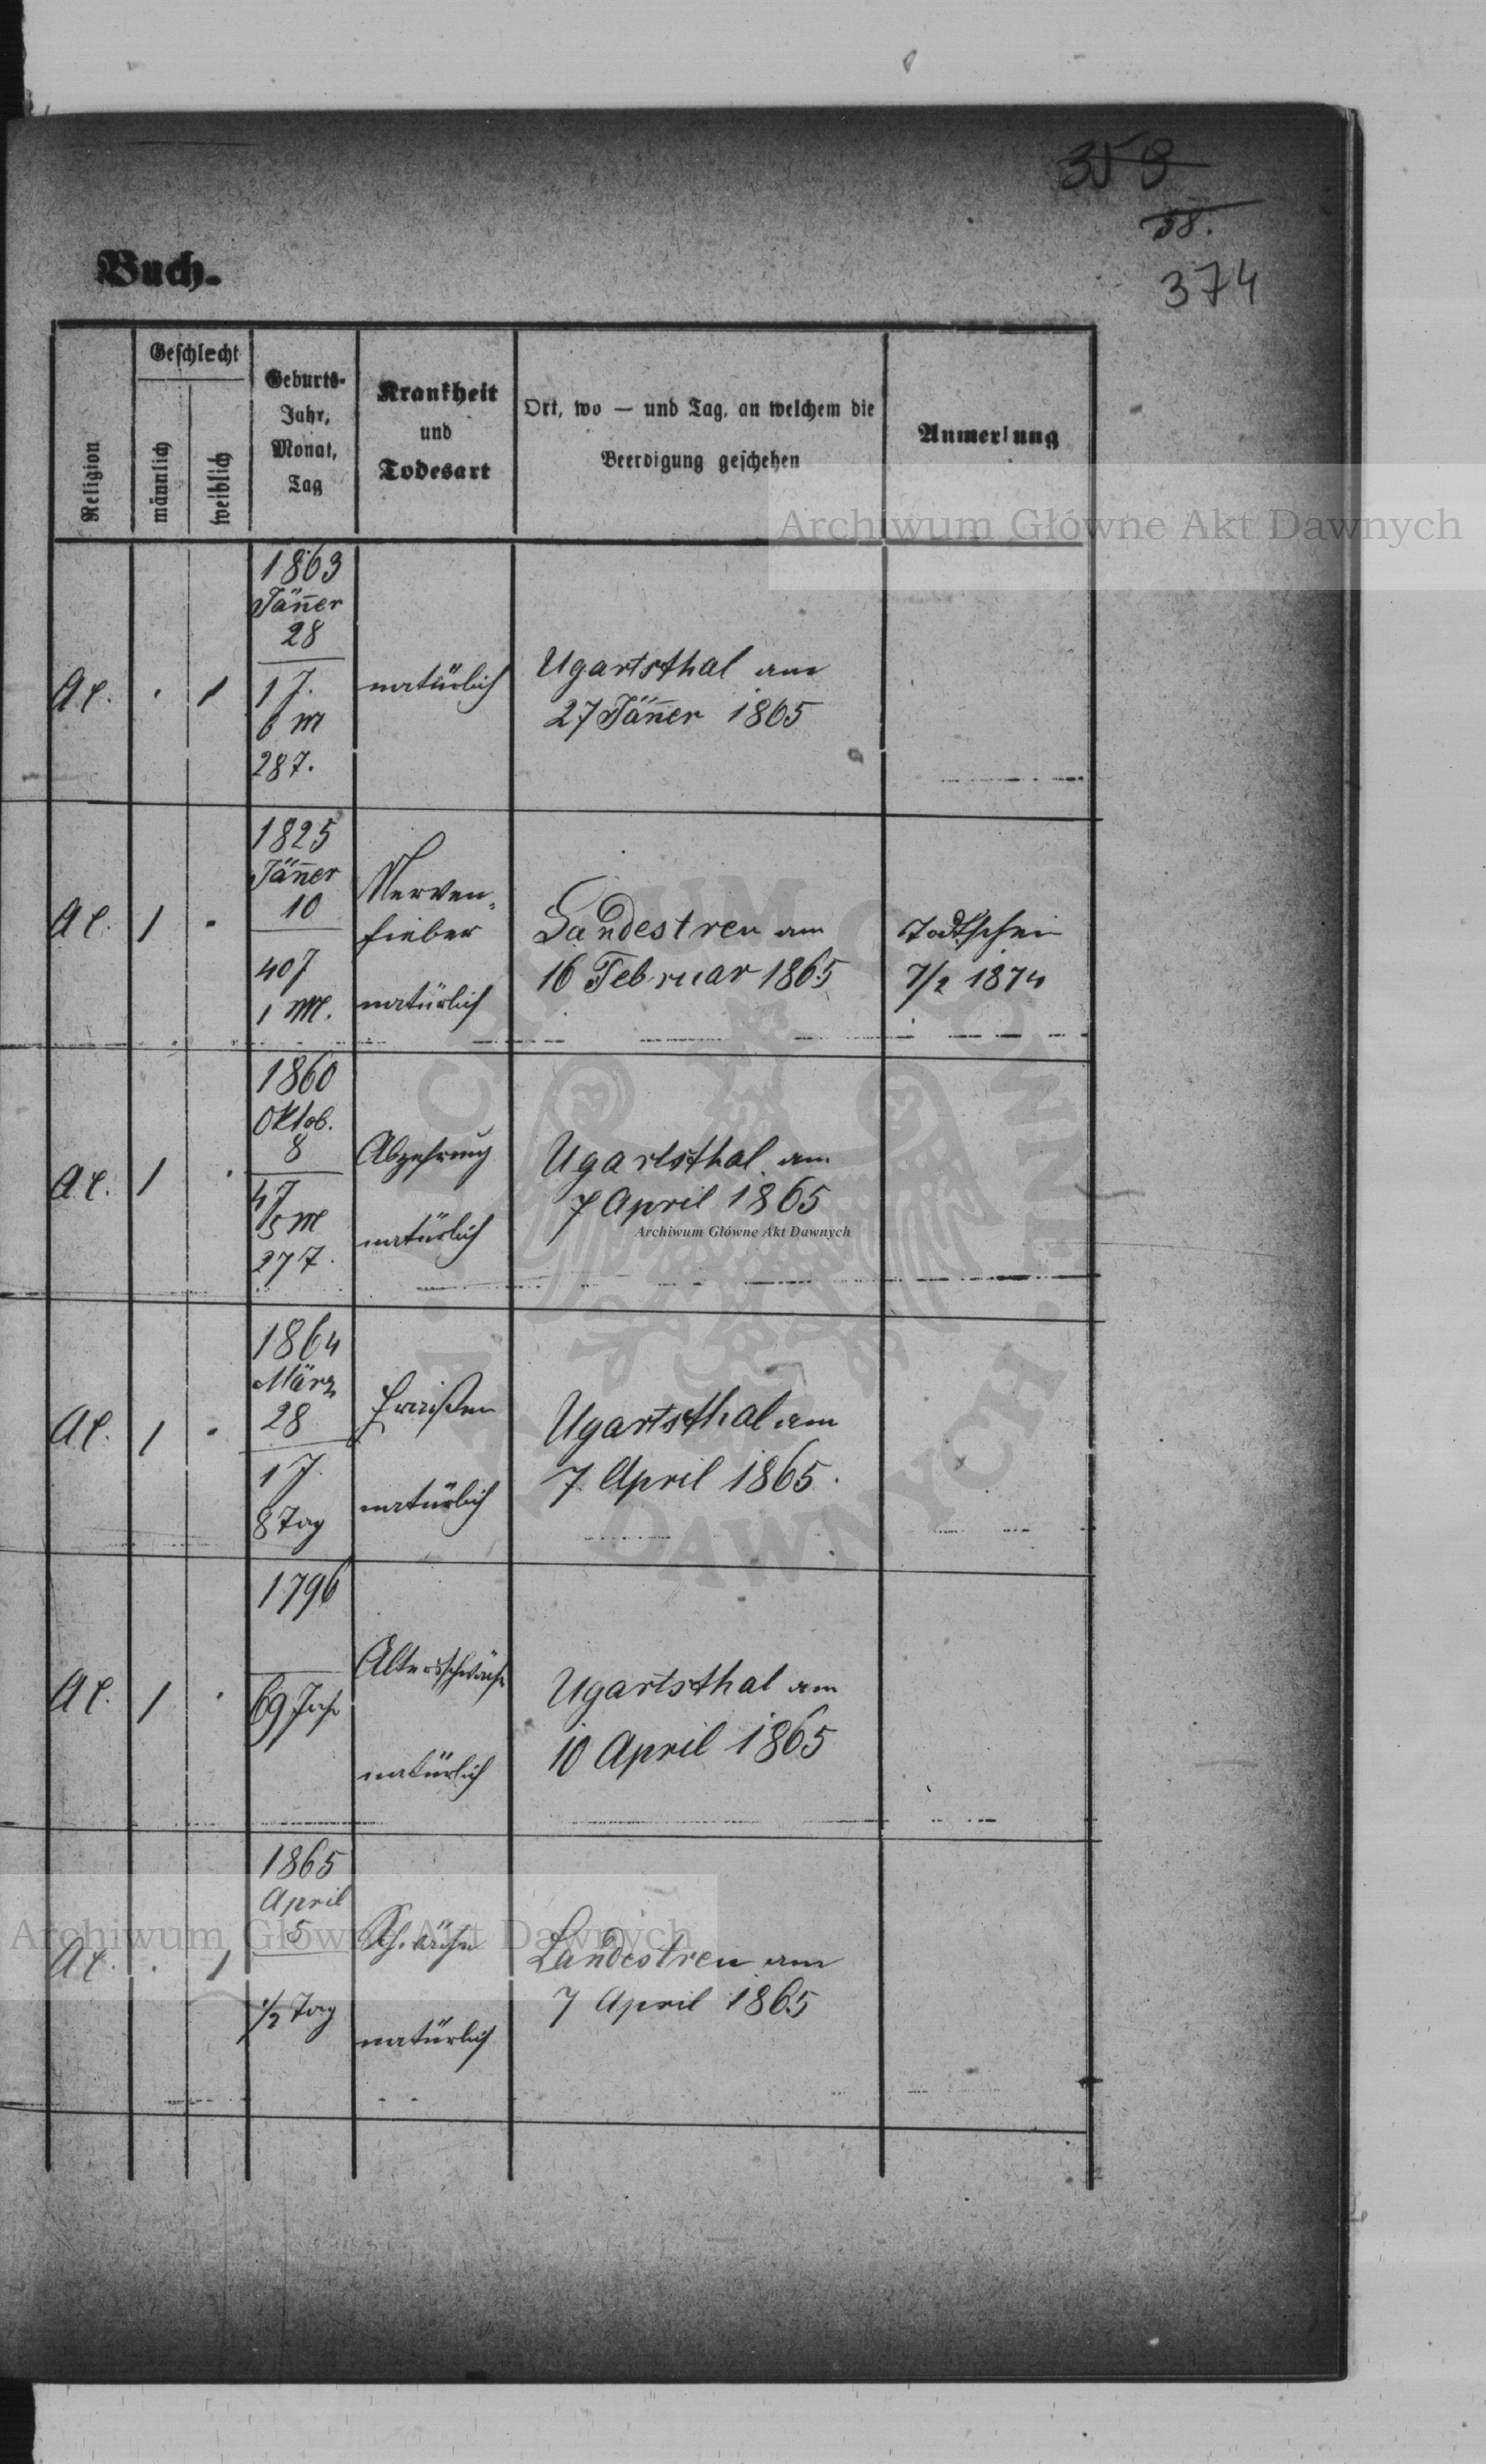 359
58.
374
Buch.
Religion
Geschlecht
männlich
weiblich
Geburts-
Jahr,
Monat,
Tag
Krankheit
und
Todesart
Ort, wo — und Tag, an welchem die
Beerdigung geschehen
Anmerkung
Archiwum Główne Akt Dawnych
1863
Jäner
28
AC. . 1
1 J.
6 M
28 T.
natürlich
Ugartsthal am
27 Jäner 1865
1825
Jäner
10
AC. 1 .
40 J
1 M.
Nerven-
fieber
natürlich
Landestreu am
16 Februar 1865
Todtschein
7/2 1874
1860
Oktob.
8
AC. 1 .
4 J
5 M
27 T.
Abzehrung
natürlich
Ugartsthal am
7 April 1865
Archiwum Główne Akt Dawnych
1864
März
28
AC. 1 .
1 J.
8 Tag
Fraisen
natürlich
Ugartsthal am
7. April 1865.
1796
AC. 1 .
69 Jahr
Altersschwäche
natürlich
Ugartsthal am
10 April 1865
1865
April
5
AC. . 1
1/2 Tag
Schwäche
natürlich
Landestreu am
7 April 1865
Archiwum Główne Akt Dawnych
ARCHIWUM GŁÓWNE
AKT DAWNYCH